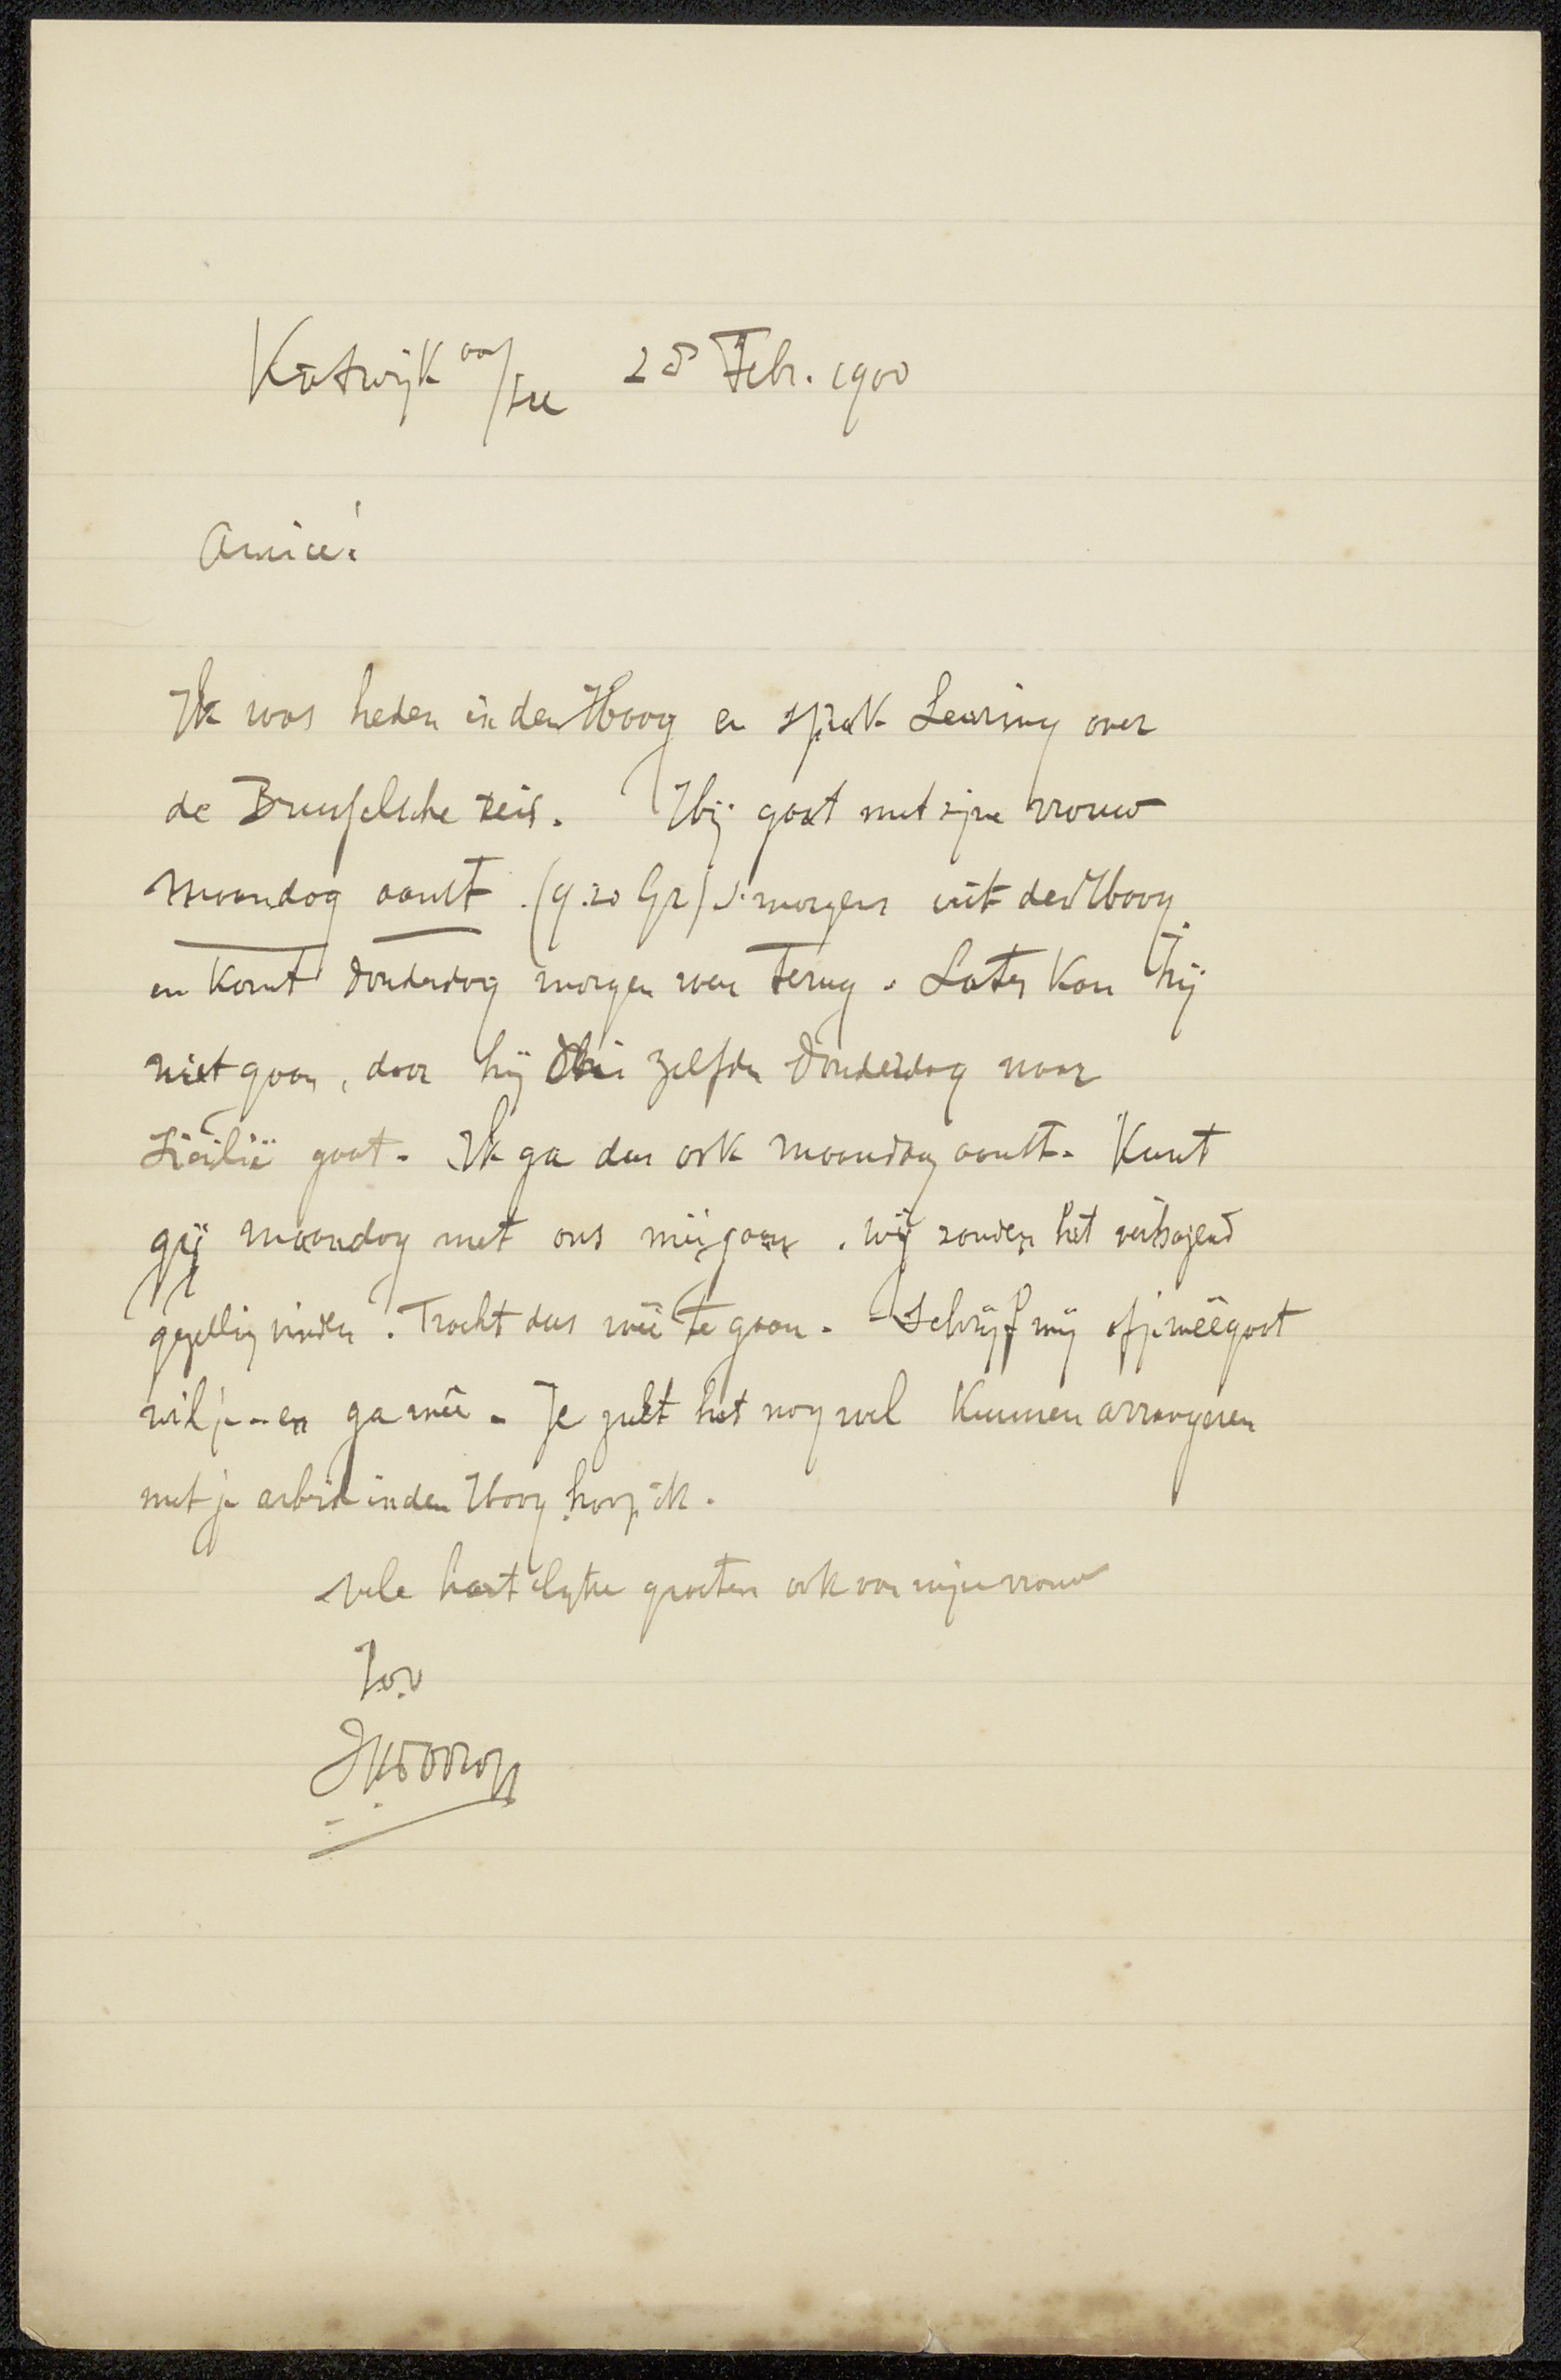 Katwijk aan/Zee 28 Febr. 1900
Amice!
Ik was heden in den Haag en sprak Leuring over
de Brusselsche reis. Hij gaat met zijne vrouw
Maandag aanst. (9.20 Gr) 's morgens uit den Haag
en komt Donderdag morgen weer terug. Later kan hij
niet gaan, daar hij zelfden Donderdag naar
Sicilië gaat. Ik ga dus ook Maandag aanst. Kunt
gij Maandag met ons meêgaan. Wij zouden het
gezellig vinden. Tracht dus meê te gaan. - Schrijf mij of je meêgaat
wil je - en ga meê. Je zult het nog wel kunnen arrangeren
met je arbeid in den Haag hoop ik.
Vele hartelijke groeten ook van mijne vrouw
t.o.v
JThToorop